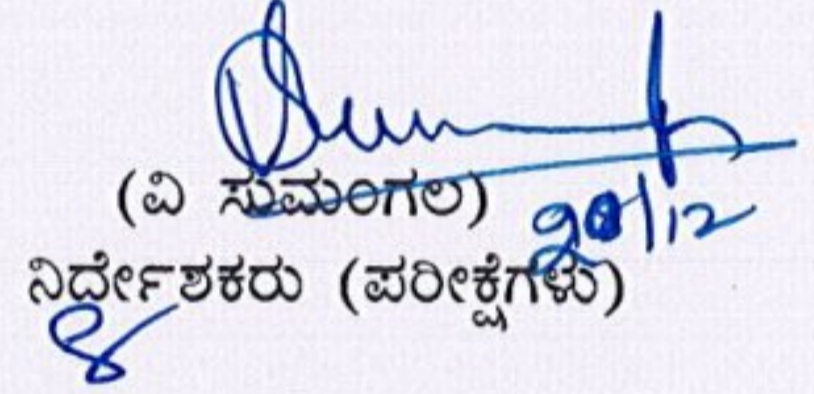 (ವಿ ಸುಮಂಗಲ)
ನಿರ್ದೇಶಕರು (ಪರೀಕ್ಷೆಗಳು)